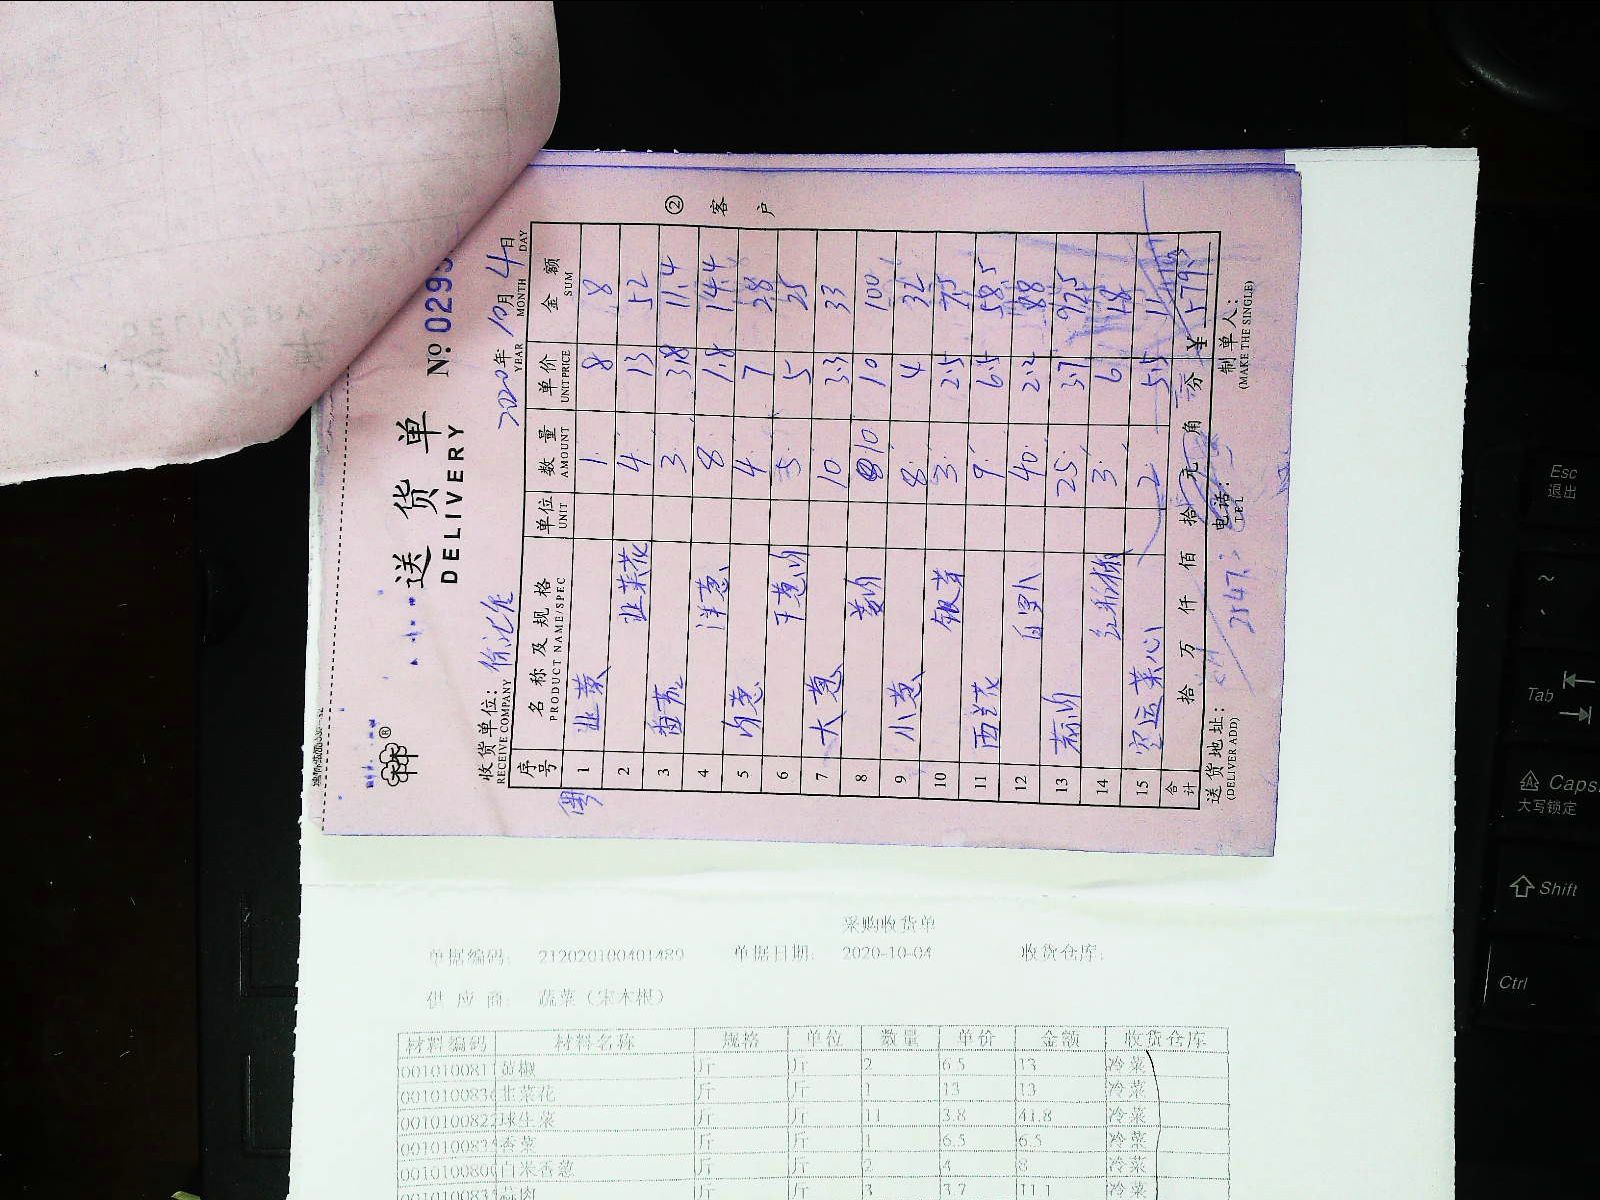 送 货 单
DELIVERY
№ 0295
收货单位：
RECEIVE COMPANY
2020年 10月 4日
YEAR MONTH DAY
② 客 户
序号 名 称 及 规 格 单位 数 量 单价 金 额
PRODUCT NAME/SPEC UNIT AMOUNT UNIT PRICE SUM
1 韭菜 1 8 8
2 韭菜花 4 13 52
3 3 3.8 11.4
4 洋葱 8 1.8 14.4
5 肉葱 4 7 28
6 干葱肉 5 5 25
7 大葱 10 3.3 33
8 姜肉 10 10 100
9 小葱 8 4 32
10 银芽 3 2.5 7.5
11 西兰花 9 6.5 58.5
12 白萝卜 40 2.2 88
13 蒜肉 25 3.7 92.5
14 红彩椒 3 6 18
15 空运菜心 2 5.5 11
合计 拾 万 仟 佰 拾 元 角 分 ¥ 579.
送货地址： 电话： 制单人：
(DELIVER ADD) TEL (MAKE THE SINGLE)
2547
采购收货单
单据编码: 212020100401489 单据日期: 2020-10-04 收货仓库:
供 应 商: 蔬菜（宋木根）
材料编码 材料名称 规格 单位 数量 单价 金额 收货仓库
0010100811 斤 斤 2 6.5 13 冷菜
001010083 韭菜花 斤 斤 1 13 13 冷菜
001010082 球生菜 斤 斤 11 3.8 41.8 冷菜
001010083 香菜 斤 斤 1 6.5 6.5 冷菜
001010080 白米香葱 斤 斤 2 4 8 冷菜
001010083 蒜肉 斤 斤 3 3.7 11.1 冷菜
Esc
退出
~
Tab
Caps
大写锁定
Shift
Ctrl